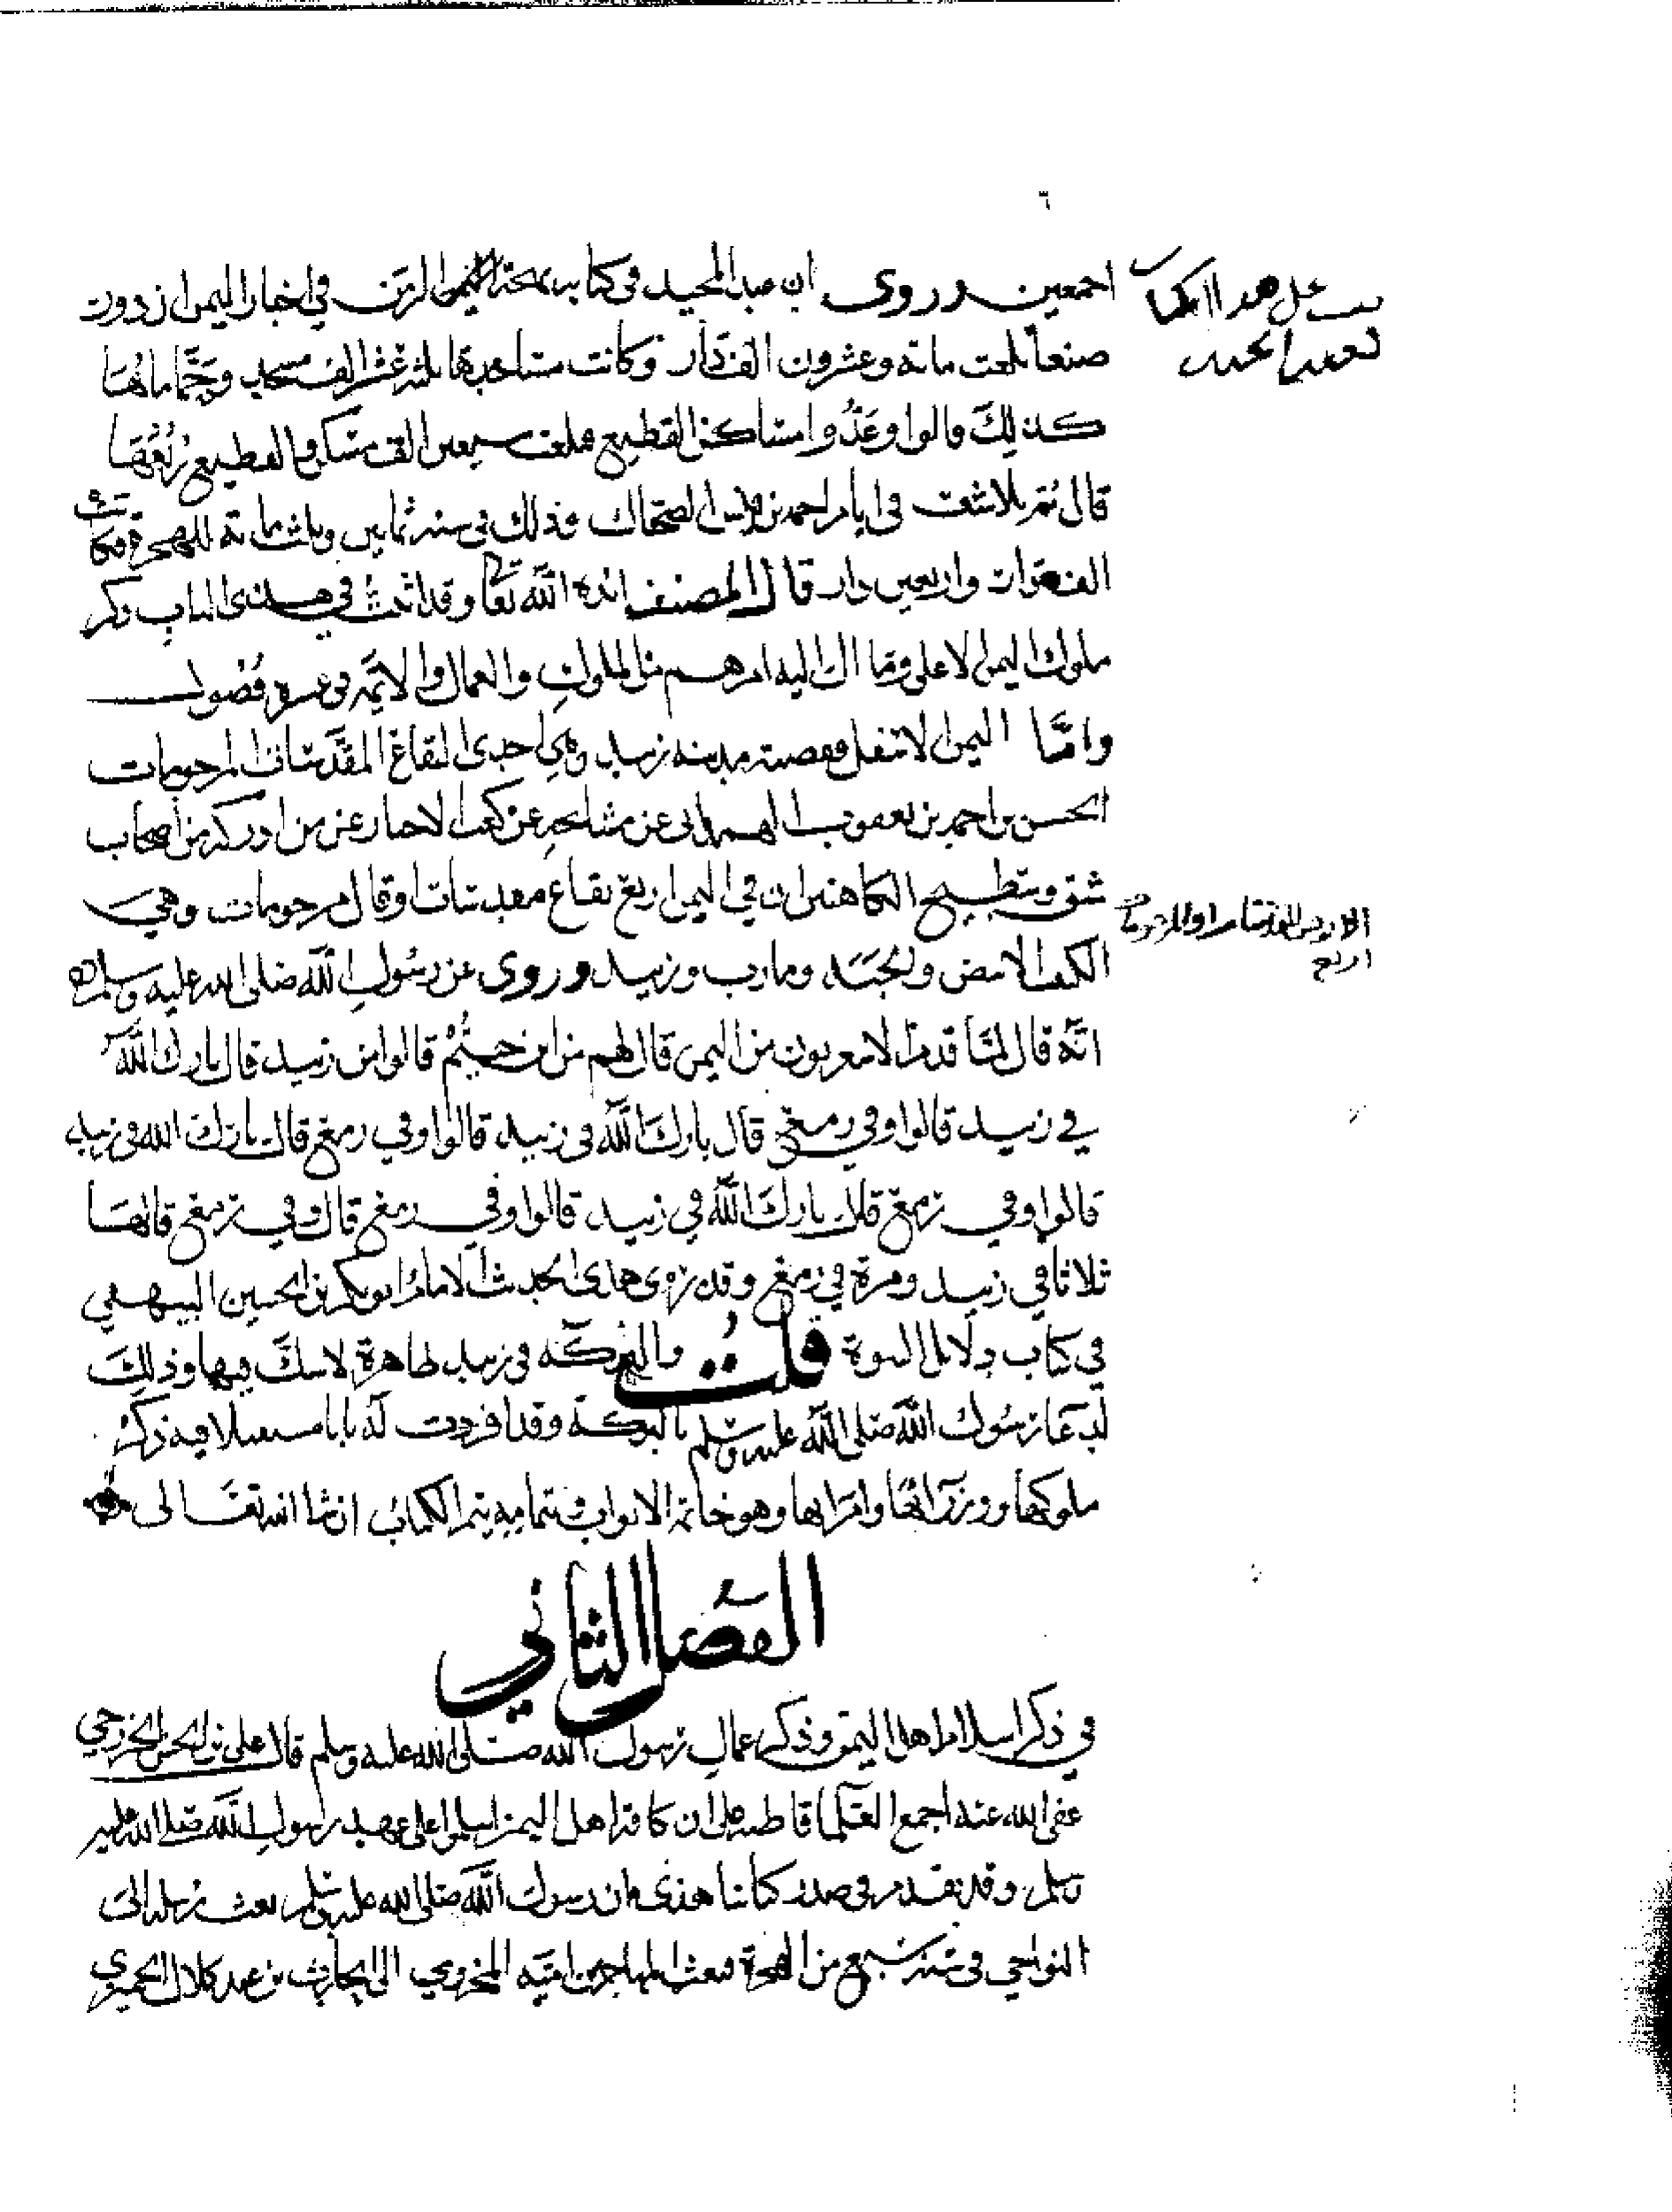 ٦
اجمعين وروى ابن عبد المجيد فى كتابه بهجة الزمن في اخبار اليمن ان دور
صنعا بلغت مائة وعشرون الف دار وكانت مساجدها عشر الف مسجد وحماماتها
كذلك قالوا وعدوا مساكن القطيع فبلغت سبعين الف مسكن والقطيع ربعها
قال ثم تلاشت فى ايام احمد بن قيس الضحاك وذلك فى سنة ثمانين وثلثمائة للهجرة فكانت
الف واربعين دار قال المصنف ايده الله تعا وقد اثبت في هذى الباب ذكر
ملوك اليمن الاعلى وما ال اليه امرهم من الملوك والعمال والائمه فى عشره فصول
وامّا اليمن الاسفل فقصبته مدينه زبيد وهي احدى البقاع المقدسات المرحومات
الحسن بن احمد بن يعقوب الهمدانى عن مشايخه عن كعب الاحبار عن من ادركه من اصحاب
شق وسطيح الكاهنين ان في اليمن اربع بقاع مقدسات او قال مرحومات وهي
الكثيب الابيض والجند ومارب وزبيد وروى عن رسول الله صلى الله عليه وسلم
انه قال لمّا قدم الاشعريون من اليمن قال لهم من اين جئتم قالوا من زبيد قال بارك الله
في زبيد قالوا وفي رمع قال بارك الله فى زبيد قالوا وفي رمع قال بارك الله فى زبيد
قالوا وفي رمع قال بارك الله في زبيد قالوا وفي رمع قال وفي رمع قالها
ثلاثا في زبيد ومرة في رمع وقد روى هذى الحديث الامام ابو بكر بن الحسين البيهقي
في كتاب دلائل النبوة قلت والبركه فى زبيد ظاهرة لا شك فيها وذلك
لدعا رسول الله صلى الله عليه وسلم بالبركة وقد افردت له بابا مستقلا فيه ذكر
ملوكها ووزرائها وامرائها وهو خاتمة الابواب وبتمامه يتم الكتاب ان شا الله تعالى
الفصل الثاني
في ذكر اسلام اهل اليمن وذكر عمال رسول الله صلى الله عليه وسلم قال على بن الحسن الخزرجي
عفى الله عنه اجمع العلما قاطبة على ان كافة اهل اليمن اسلموا على عهد رسول الله صلى الله عليه
وسلم وقد تقدم فى صدر كتابنا هذى ان رسول الله صلى الله عليه وسلم بعث رسله الى
النواحي فى سنة سبع من الهجرة فبعث المهاجر بن امية المخزومي الى الحارث بن عبد كلال الحميري
على هذا الكتاب
لعبد المجيد
المقدسات او المرحومات
اربع